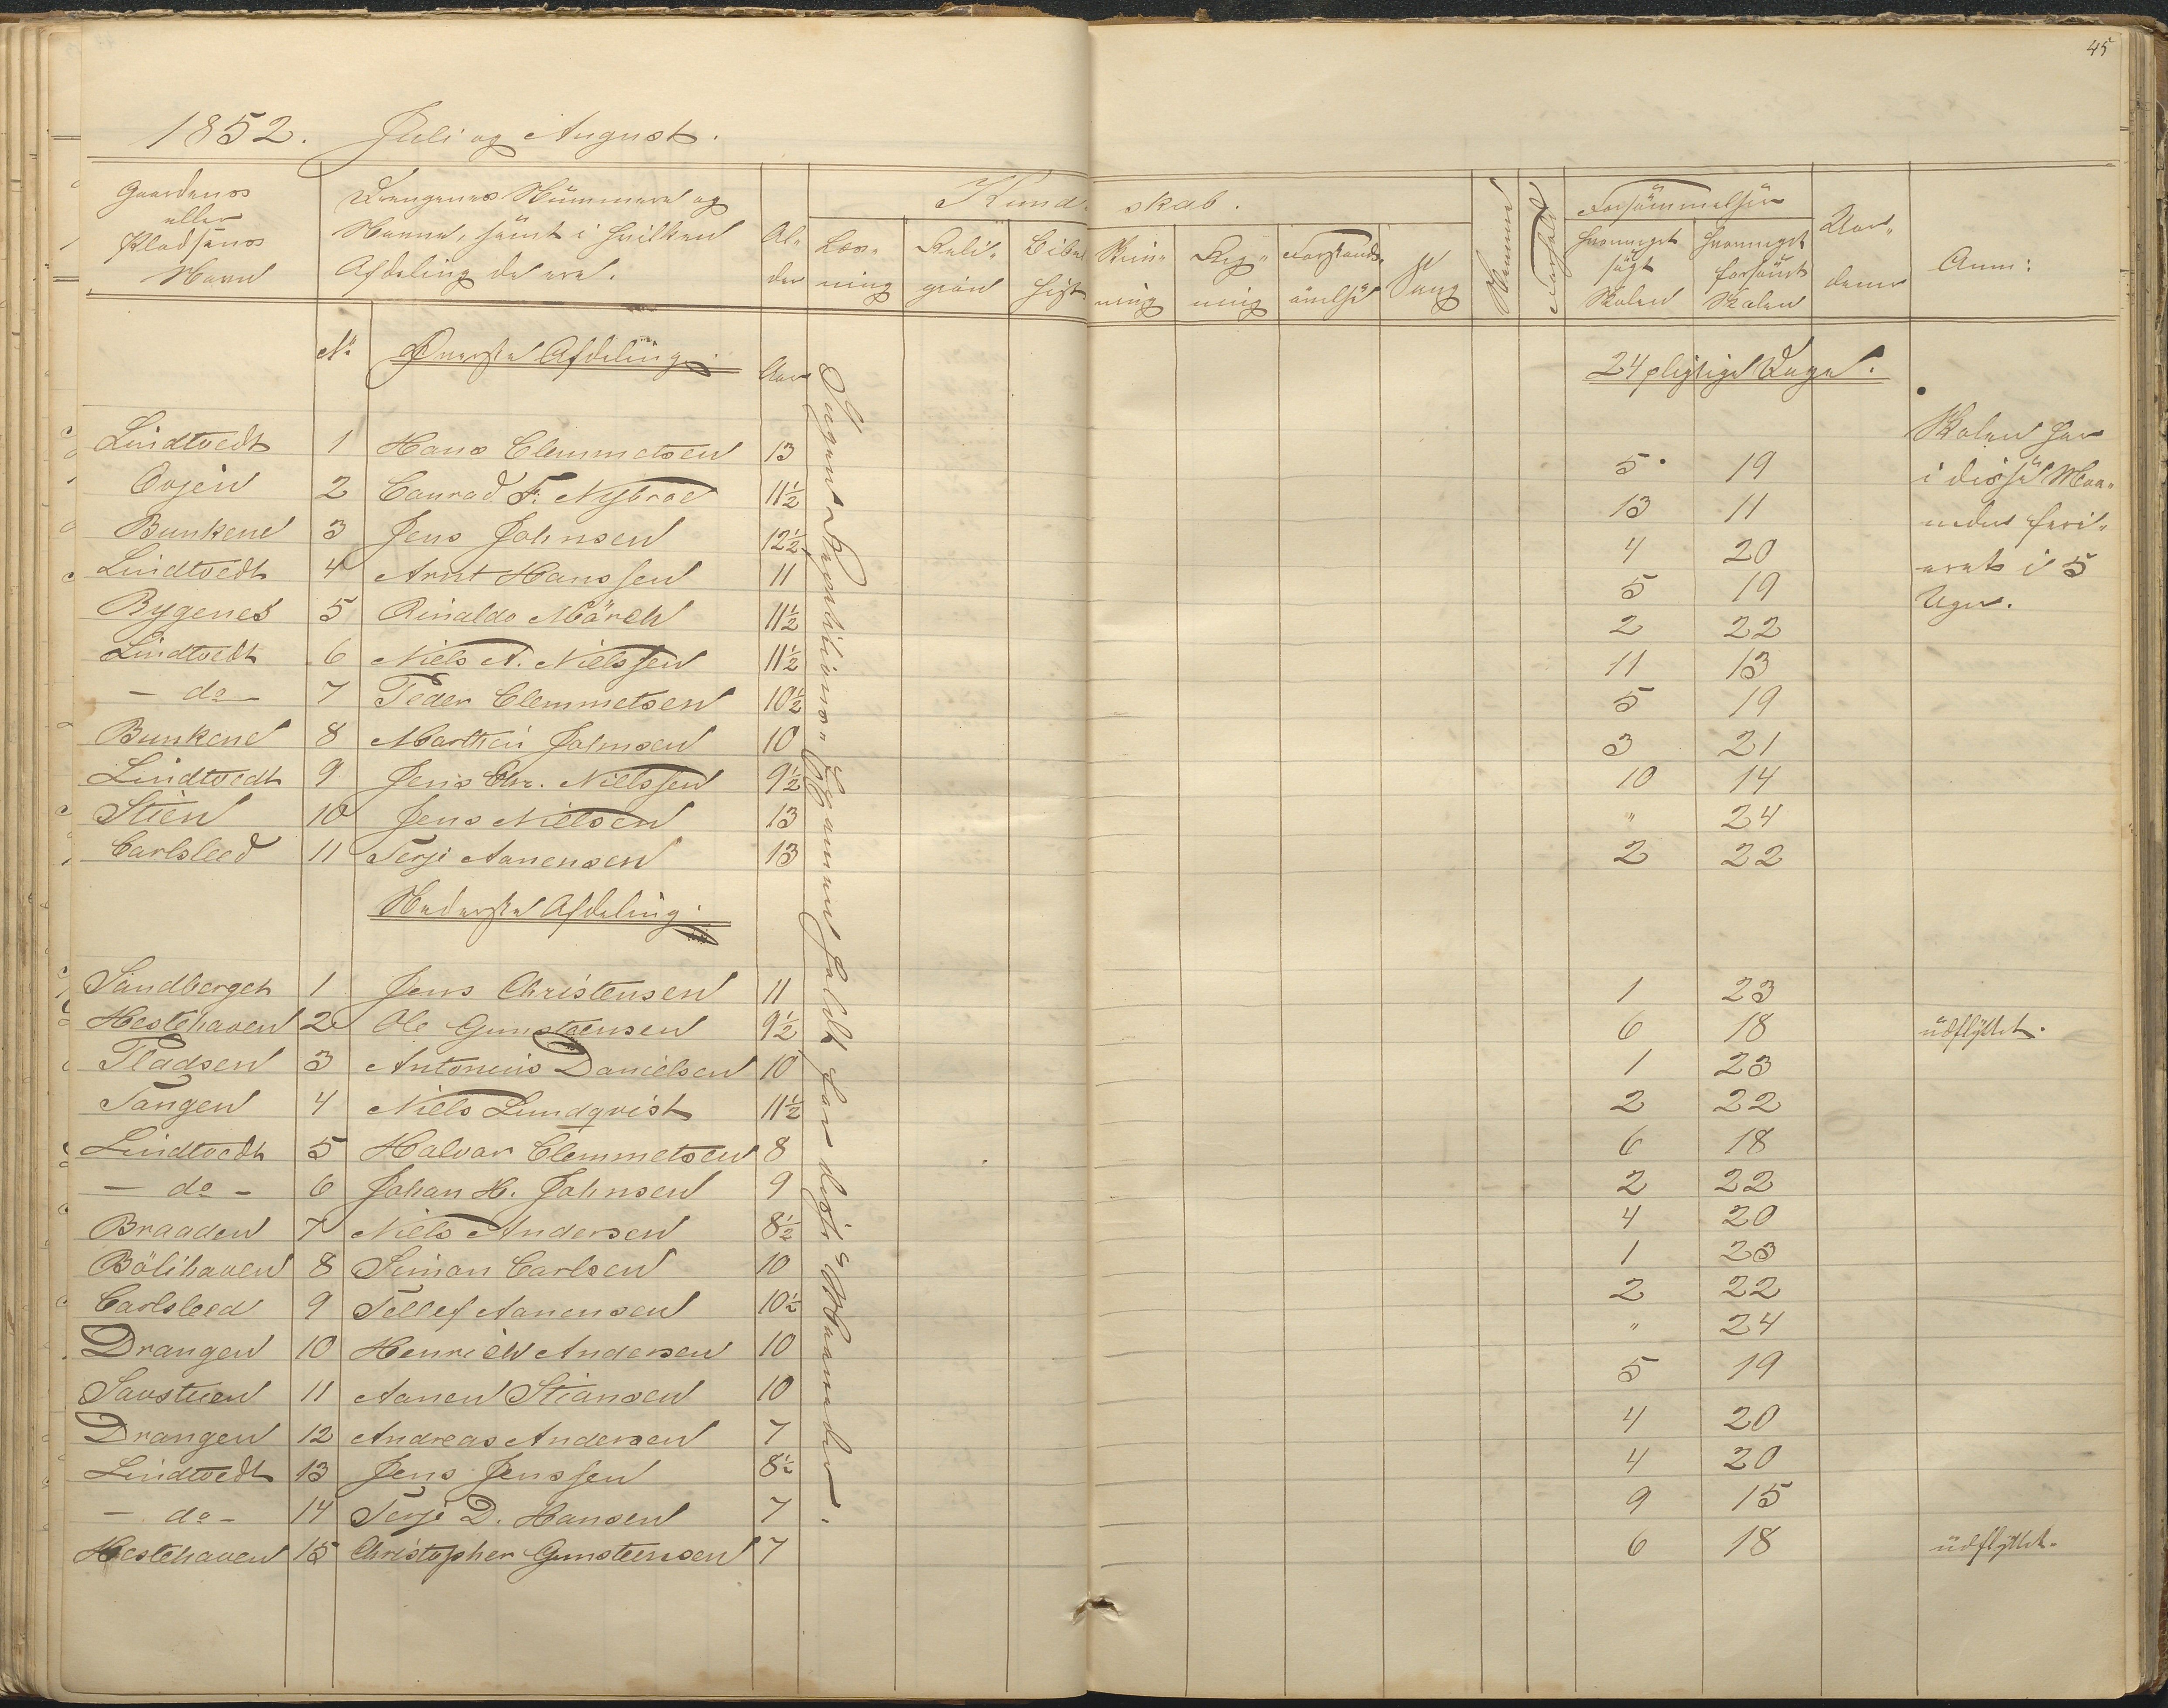 45
1852. Juli og August.
Gaardenes eller Pladsenes Navn
Drengenes Nummere og Navne, samt i hvilken Afdeling de ere.
Alder
Kundskab.
Læsning
Religion
Bibelhist
Skrivning
Regning
Forstandsövelse
Sang
Nemme
Forhold
Forsömmelser
hvormeget sögt Skolen
hvormeget forsömt Skolen
Anm:
No Överste Afdeling. Aar 24 pligtige Dage.
Lindtvedt 1 Hans Clemmetsen 13 5 19
Oxjen 2 Conrad F. Nybroe 11½ 13 11
Bunkene 3 Jens Johnsen 12½ 4 20
Lindtvedt 4 Arnt Hanssen 11 5 19
Bygenes 5 Rinaldo Mörch 11½ 2 22
Lindtvedt 6 Niels A. Nielssen 11½ 11 13
– do – 7 Peder Clemmetsen 10½ 5 19
Bunkene 8 Marthin Johnsen 10 3 21
Lindtvedt 9 Jens Chr. Nielssen 9½ 10 14
Stien 10 Jens Nielsen 13 " 24
Carlsleed 11 Terje Aanensen 13 2 22
Skolen har
i disse Maa-
neder feri-
eret i 5
Uger.
Ingen Inqvisitions-Examen holdt for disse Maaneder.
Nederste Afdeling.
Sandberget 1 Jens Christensen 11 1 23
Hestehaven 2 Ole Gunstensen 9½ 6 18 udflyttet.
Pladsen 3 Antonius Danielsen 10 1 23
Tangen 4 Niels Lundqvist 11½ 2 22
Lindtvedt 5 Halvor Clemmetsen 8 6 18
– do – 6 Johan H. Johnsen 9 2 22
Braaden 7 Niels Andersen 8½ 4 20
Bölihaven 8 Simon Carlsen 10 1 23
Carlsleed 9 Tellef Aanensen 10½ 2 22
Drangen 10 Henrich Andersen 10 " 24
Saustuen 11 Aanen Stiansen 10 5 19
Drangen 12 Andreas Andersen 7 4 20
Lindtvedt 13 Jens Jenssen 8½ 4 20
– do – 14 Terje D. Hansen 7 9 15
Hestehaven 15 Christopher Gunstensen 7 6 18 udflyttet.